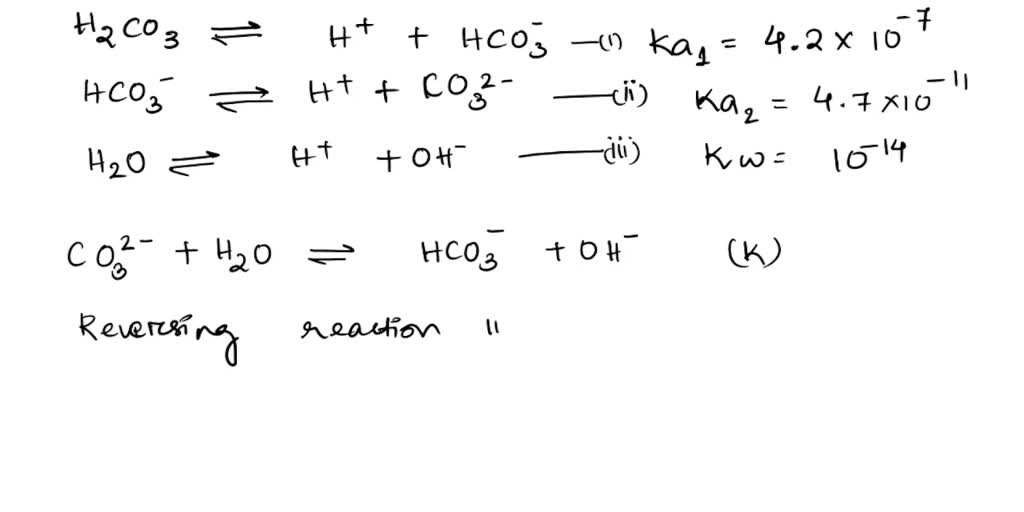 H₂CO₃ ⇌ H⁺ + HCO₃⁻ —(i) Ka₁ = 4.2 × 10⁻⁷
HCO₃⁻ ⇌ H⁺ + CO₃²⁻ —(ii) Ka₂ = 4.7 × 10⁻¹¹
H₂O ⇌ H⁺ + OH⁻ —(iii) Kw = 10⁻¹⁴
CO₃²⁻ + H₂O ⇌ HCO₃⁻ + OH⁻ (K)
Reversing reaction ii